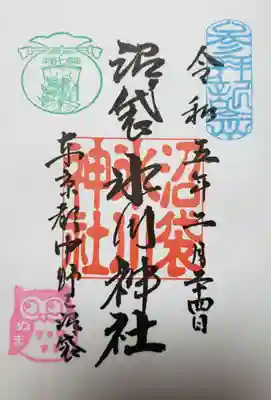 参拝記念
令和五年二月二十四日
沼袋氷川神社
沼袋
氷川
神社
東京都中野区沼袋
ぬま